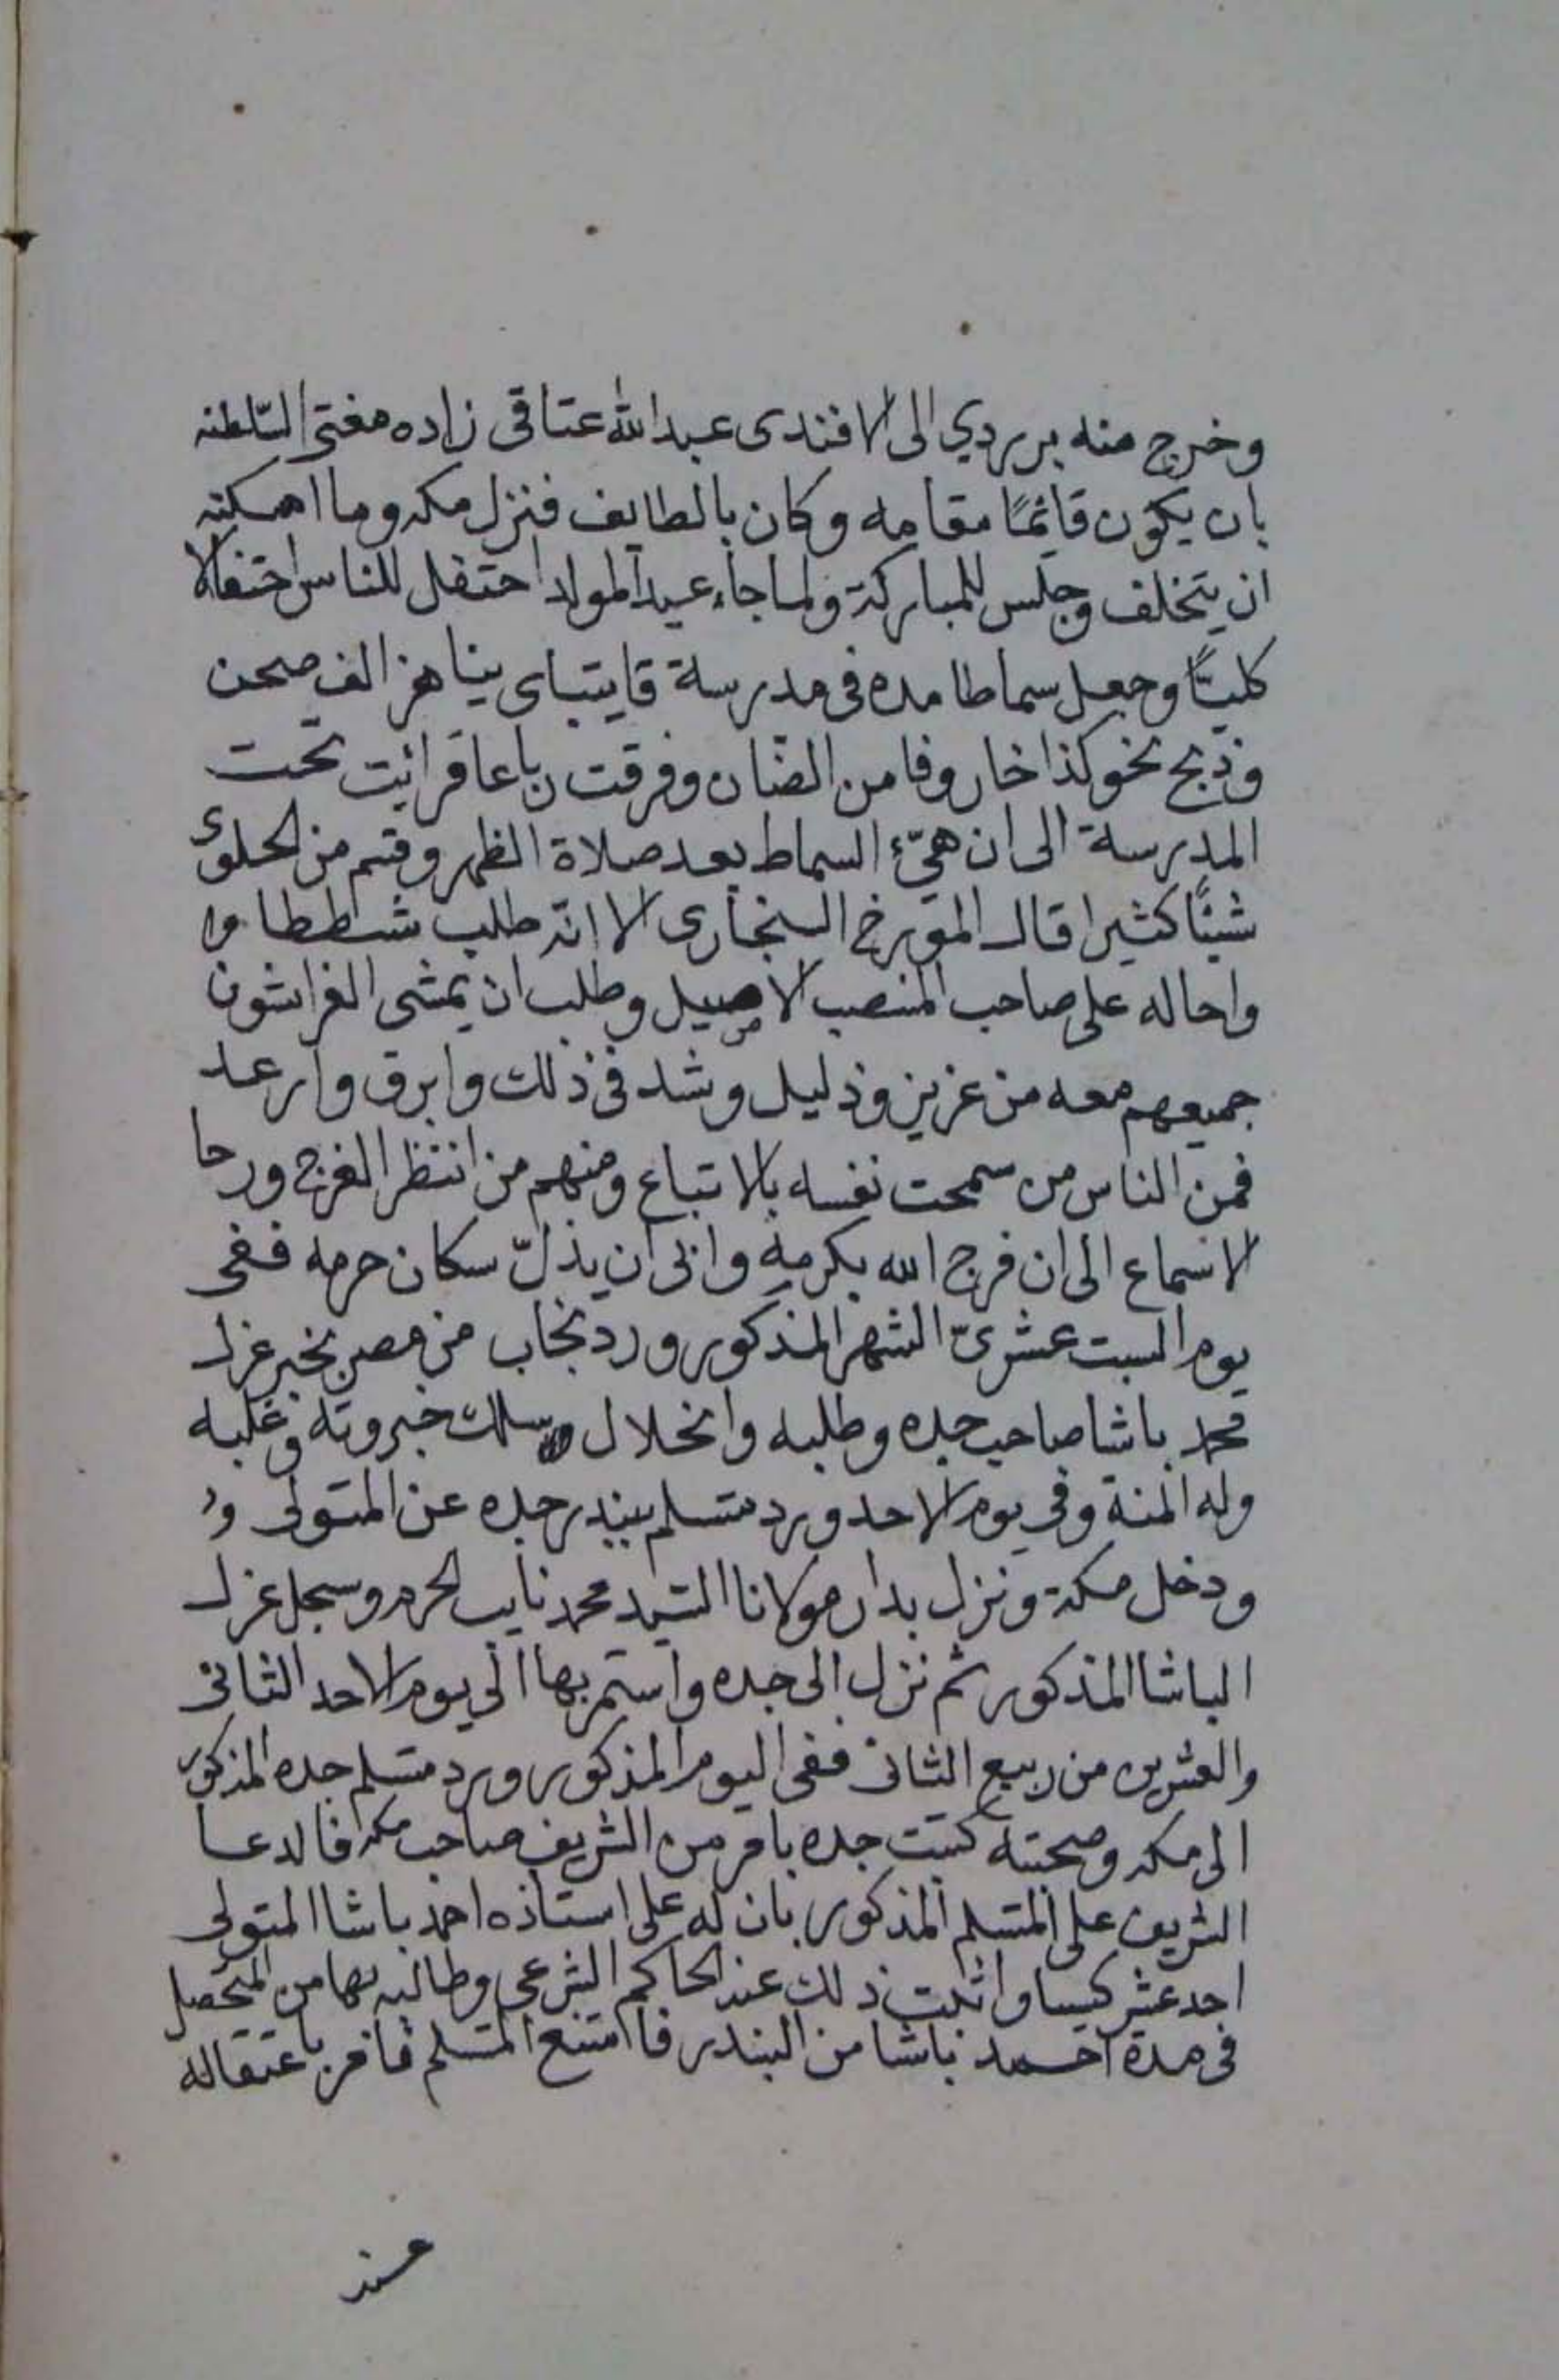 وخرج منه بربردي الى الافندى عبدالله عتاقى زاده مفتى السّلطنه
بان يكون قائمًا مقامه وكان بالطايف فنزل مكه وما امكنه
ان يتخلف وجلس للمباركة ولما جاء عيد المولد احتفل للناس احتفالا
كليًّا وجعل سماطا مده فى مدرسة قايتباى يناهز الف صحن
وذبح نحو كذا خاروفا من الضّان وفرقت رباعا قرائيت تحت
المدرسة الى ان هيّء السماط بعد صلاة الظهر وقسم من الحلوى
شيئًا كثيرا قال المؤرخ السنجارى الا انّه طلب شططا وا
واحاله على صاحب المنصب الاصيل وطلب ان يمشى الفراشون
جميعهم معه من عزيز وذليل وشد فى ذلك وابرق وارعد
فمن الناس من سمحت نفسه بالاتباع ومنهم من انتظر الفرج ورجا
الاسماع الى ان فرج الله بكرمه وابى ان يذلّ سكان حرمه ففى
يوم السبت عشرىّ الشهر المذكور ورد نجاب من مصر بخبر عزل
محمد باشا صاحب جده وطلبه وانحلال سلك جبروته وغلبه
وله المنة وفى يوم الاحد ورد متسلم بندر جده عن المتولى و
ودخل مكة ونزل بدار مولانا السّيد محمد نايب الحرم وسجل عزل
الباشا المذكور ثم نزل الى جده واستمر بها الى يوم الاحد الثانى
والعشرين من ربيع الثانى ففى اليوم المذكور ورد متسلم جده المذكور
الى مكه وصحبته كتبت جده بامر من الشريف صاحب مكه فالدعا
الشريف على المتسلم المذكور بان له على استاذه احمد باشا المتولى
احد عشر كيسا واثبت ذلك عند الحاكم الشرعى وطالبه بها من المتحصل
فى مدة احمد باشا من البندر فامتنع المتسلم فامر باعتقاله